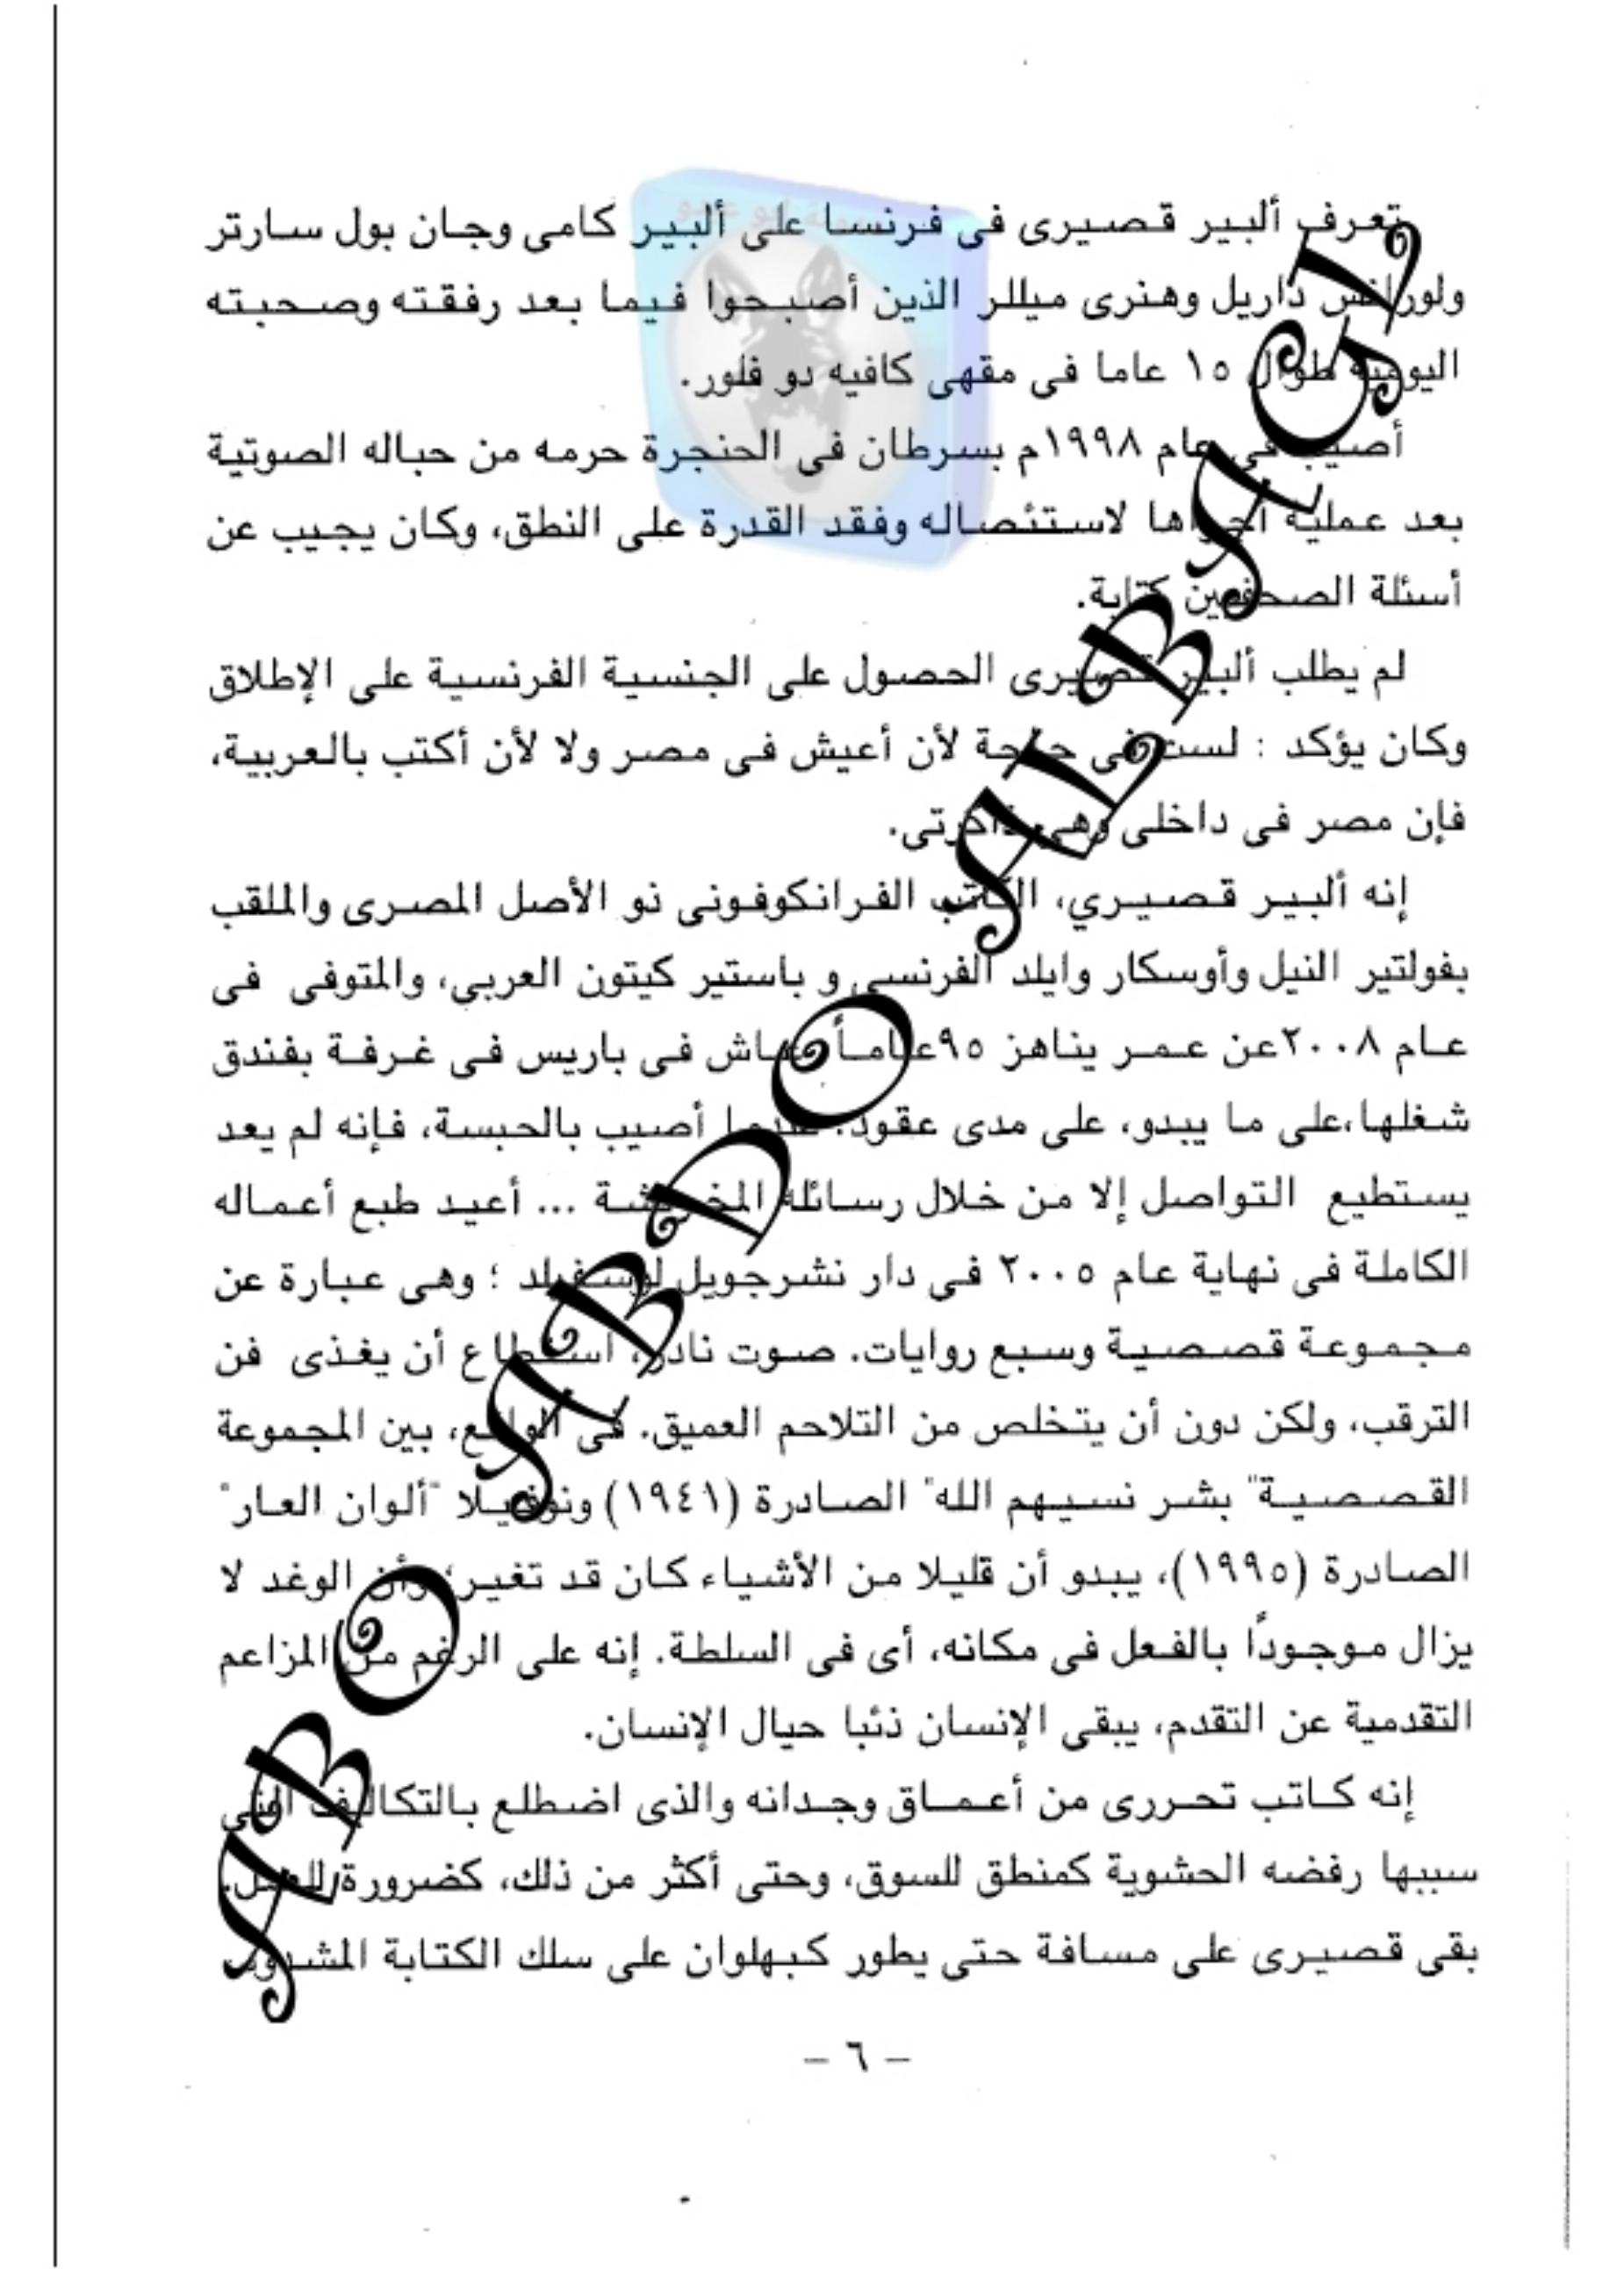 تعرف ألبير قصيرى فى فرنسا على ألبير كامى وجان بول سارتر
ولورانس داريل وهنرى ميللر الذين أصبحوا فيما بعد رفقته وصحبته
اليومية طوال ١٥ عاما فى مقهى كافيه دو فلور.
أصيب فى عام ١٩٩٨م بسرطان فى الحنجرة حرمه من حباله الصوتية
بعد عملية أجراها لاستئصاله وفقد القدرة على النطق، وكان يجيب عن
أسئلة الصحفيين كتابة.
لم يطلب ألبير قصيرى الحصول على الجنسية الفرنسية على الإطلاق
وكان يؤكد : لست فى حاجة لأن أعيش فى مصر ولا لأن أكتب بالعربية،
فإن مصر فى داخلى وهى ذاكرتى.
إنه ألبير قصيري، الكاتب الفرانكوفونى ذو الأصل المصرى والملقب
بفولتير النيل وأوسكار وايلد الفرنسى و باستير كيتون العربي، والمتوفى فى
عام ٢٠٠٨عن عمر يناهز ٩٥عاماً عاش فى باريس فى غرفة بفندق
شغلها،على ما يبدو، على مدى عقود. عندما أصيب بالحبسة، فإنه لم يعد
يستطيع التواصل إلا من خلال رسائله المخربشة ... أعيد طبع أعماله
الكاملة فى نهاية عام ٢٠٠٥ فى دار نشرجويل لوسفيلد ؛ وهى عبارة عن
مجموعة قصصية وسبع روايات. صوت نادر، استطاع أن يغذى فن
الترقب، ولكن دون أن يتخلص من التلاحم العميق. فى الواقع، بين المجموعة
القصصية" بشر نسيهم الله" الصادرة (١٩٤١) ونوفيلا "ألوان العار"
الصادرة (١٩٩٥)، يبدو أن قليلا من الأشياء كان قد تغير؛ وأن الوغد لا
يزال موجودًا بالفعل فى مكانه، أى فى السلطة. إنه على الرغم من المزاعم
التقدمية عن التقدم، يبقى الإنسان ذئبا حيال الإنسان.
إنه كاتب تحررى من أعماق وجدانه والذى اضطلع بالتكاليف التى
سببها رفضه الحشوية كمنطق للسوق، وحتى أكثر من ذلك، كضرورة للعمل.
بقى قصيرى على مسافة حتى يطور كبهلوان على سلك الكتابة المشدود
– ٦ –
ABO ABDO ALBAGL